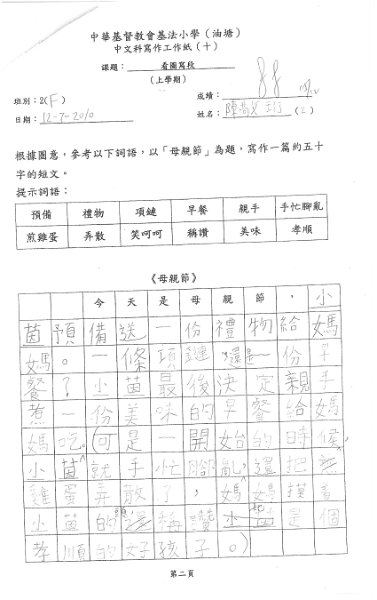 中華基督教會基法小學(油塘)
中文科寫作工作紙(十)
課題: 看圖寫段
(上學期)
班別:2(F) 成績:88
日期:12-7-2010 姓名:陳 (2)
根據圖意,參考以下詞語,以「母親節」為題,寫作一篇約五十
字的短文。
提示詞語:
預備 禮物 項鏈 早餐 親手 手忙腳亂
煎雞蛋 弄散 笑呵呵 稱讚 美味 孝順
《母親節》
今天是母親節,小
茵預備送一份禮物給媽
媽。一條項鏈還是一份早
餐?小茵最後決定親手
煮一份美味的早餐給媽
媽吃(可是一開始的時候,
小茵就手忙腳亂,還把
雞蛋弄散了,媽媽摸着
小茵的頭稱讚是個
孝順的女孩子。)
第二頁